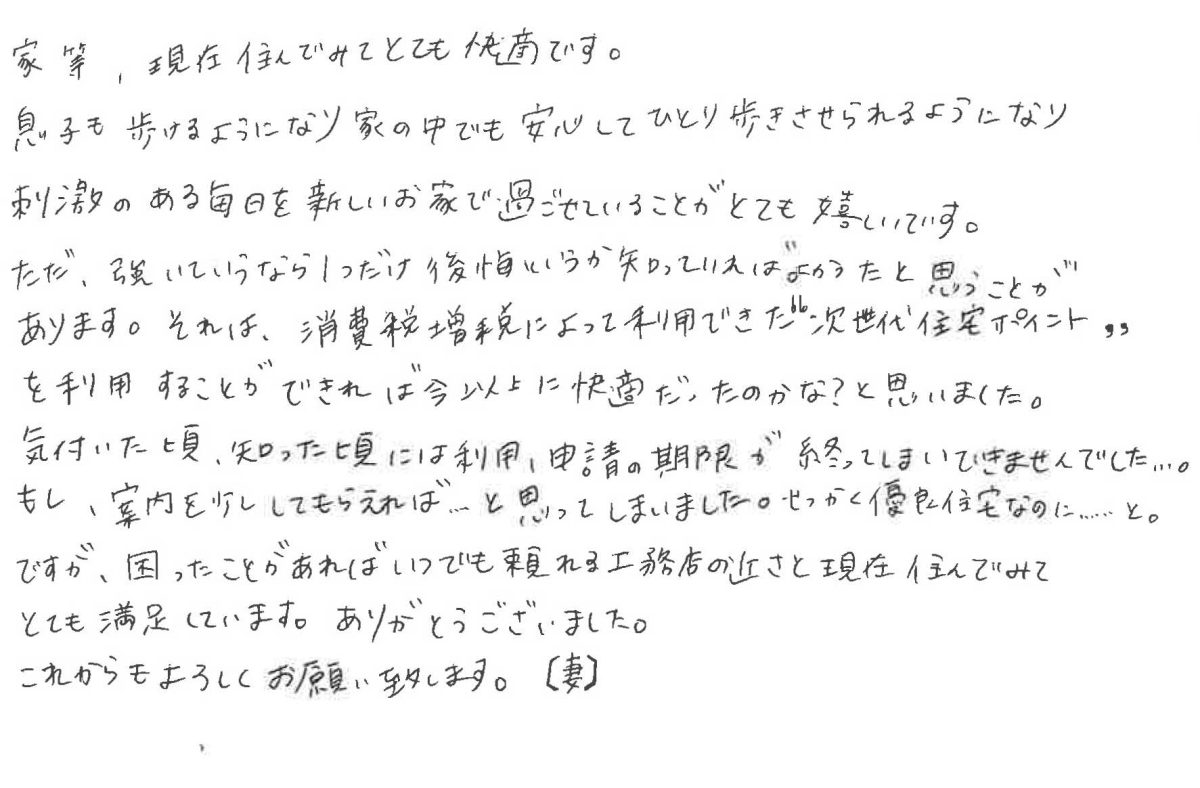 家等、現在住んでみてとても快適です。
息子も歩けるようになり家の中でも安心してひとり歩きさせられるようになり
刺激のある毎日を新しいお家で過ごせていることがとても嬉しいです。
ただ、強いていうなら1つだけ後悔というか知っていればよかったと思うことが
あります。それは、消費税増税によって利用できた“次世代住宅ポイント„
を利用することができれば今以上に快適だったのかな?と思いました。
気付いた頃、知った頃には利用、申請の期限が終ってしまいできませんでした…。
もし、案内を少ししてもらえれば…と思ってしまいました。せっかく優良住宅なのに……と。
ですが、困ったことがあればいつでも頼れる工務店の近さと現在住んでみて
とても満足しています。ありがとうございました。
これからもよろしくお願い致します。〔妻〕